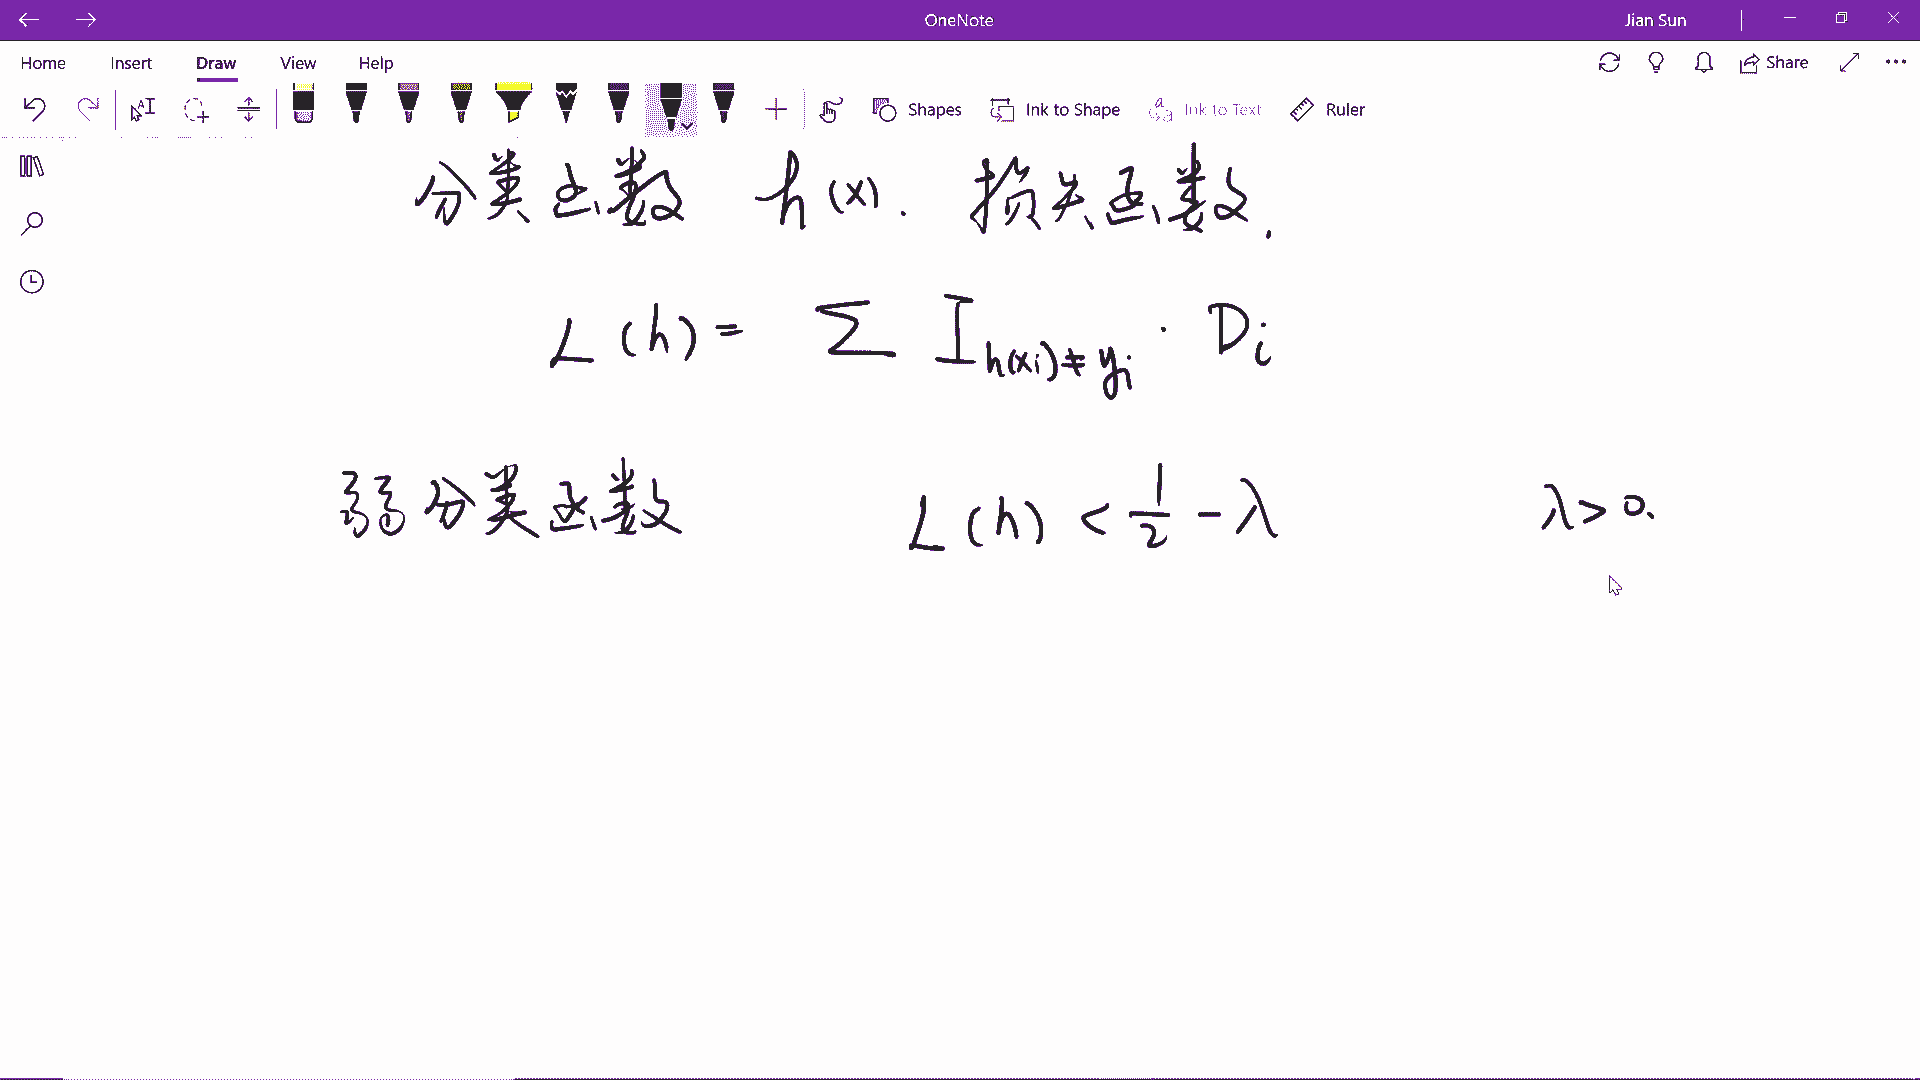 OneNote
Jian Sun
Home Insert Draw View Help
Share
Shapes Ink to Shape Ink to Text Ruler
分类函数 h(x). 损失函数.
L(h) = ∑ I_{h(x_i)≠y_i} · D_i
弱分类函数 L(h) < 1/2 - λ λ > 0.